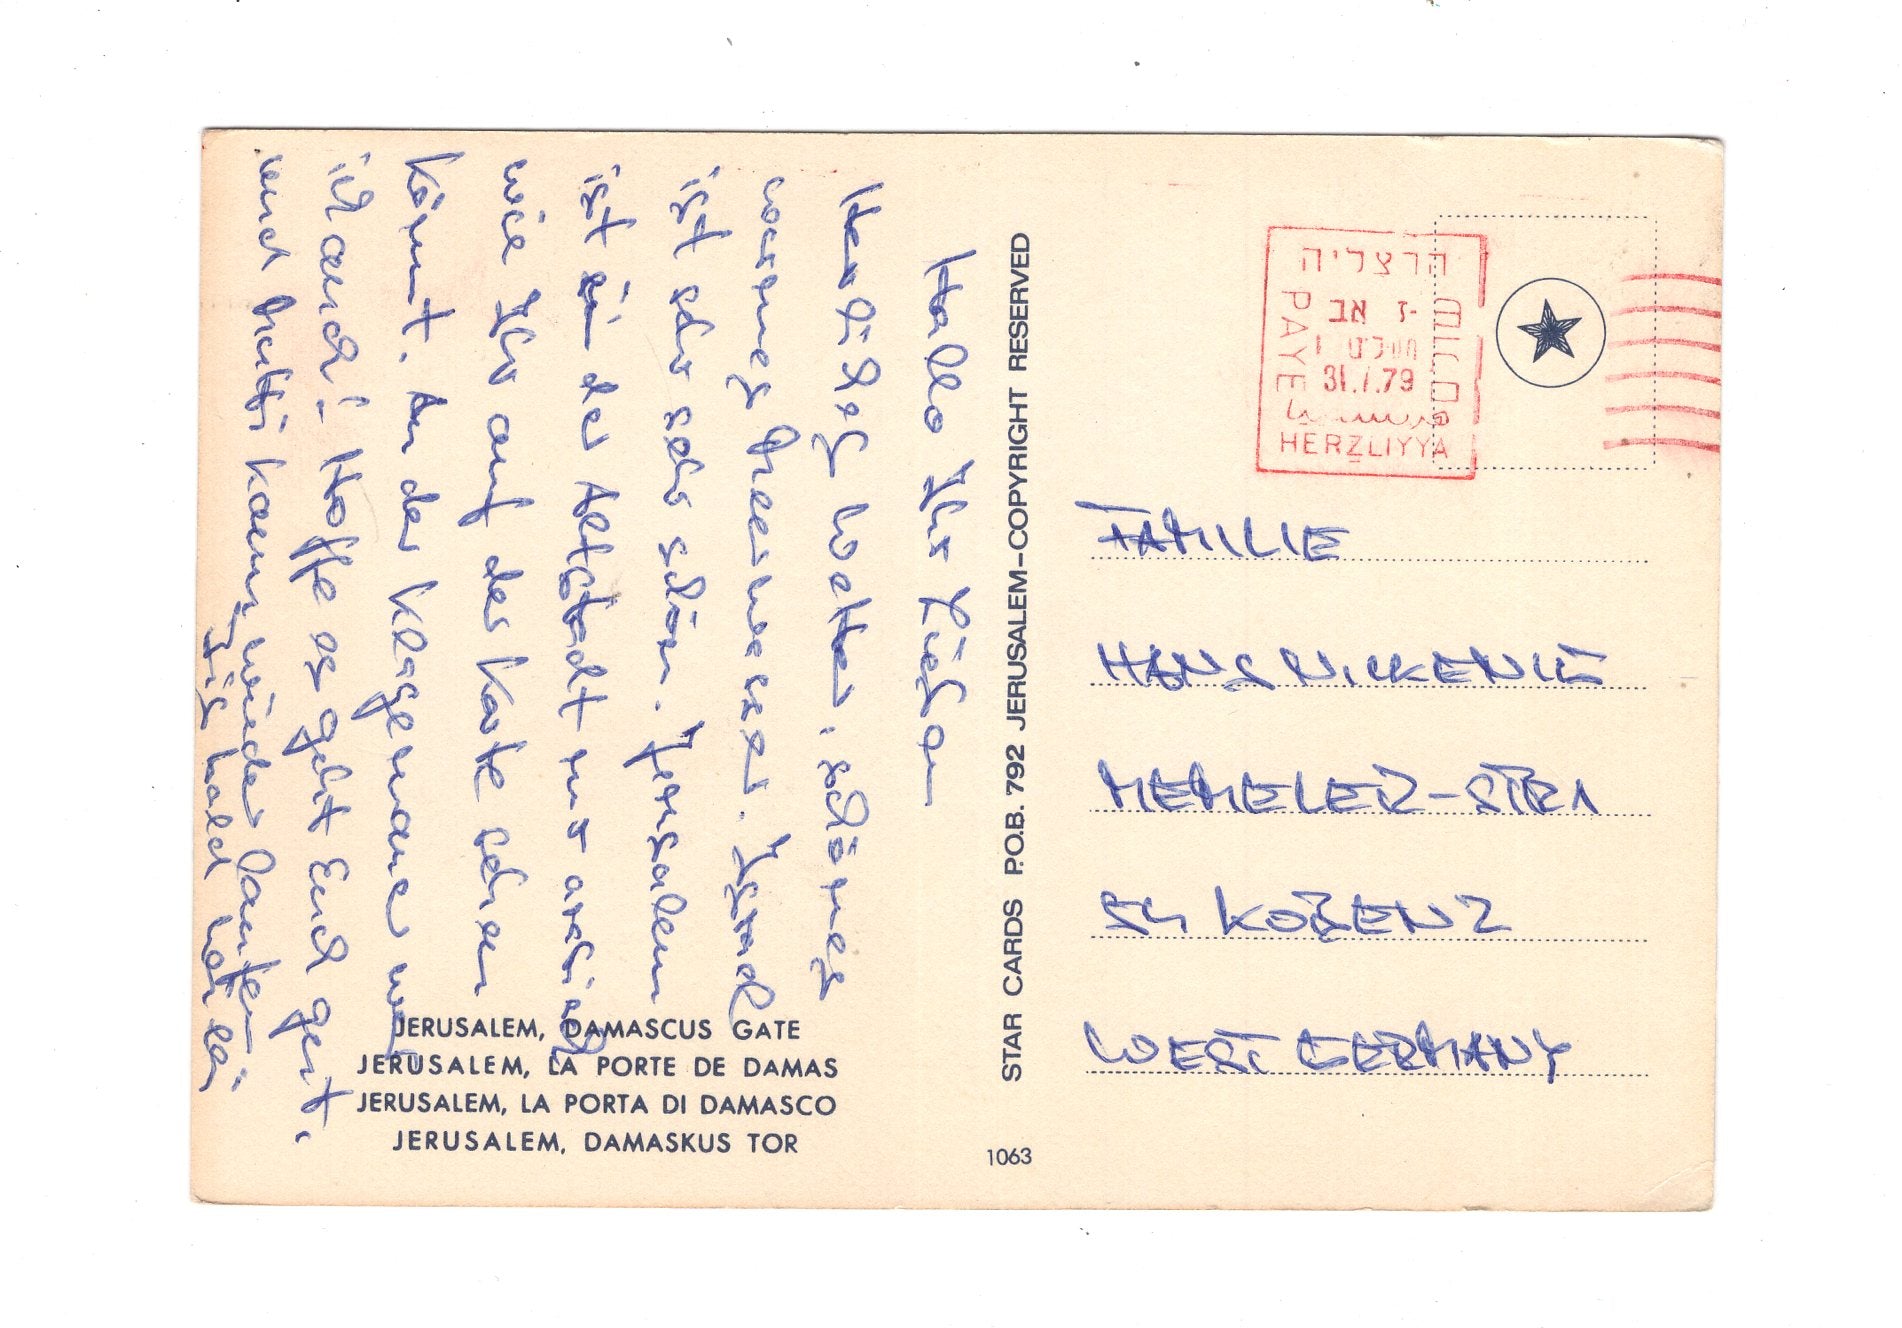 Hallo Ihr Lieben
Herrliches Wetter, schönes
warmes Meerwasser. Israel
ist sehr sehr schön. Jerusalem
ist in der Altstadt nur arabisch
wie Ihr auf der Karte sehen
könnt. An der Klagemauer war
ich auch! Hoffe es geht Euch gut.
und Mutti kann wieder
bald
STAR CARDS P.O.B. 792 JERUSALEM–COPYRIGHT RESERVED
JERUSALEM, DAMASCUS GATE
JERUSALEM, LA PORTE DE DAMAS
JERUSALEM, LA PORTA DI DAMASCO
JERUSALEM, DAMASKUS TOR
1063
הרצליה
ז אב
31.7.79
PAYE
HERZLIYYA
FAMILIE
HANS
MEMELER-STR 1
54 KOBENZ
WEST GERMANY